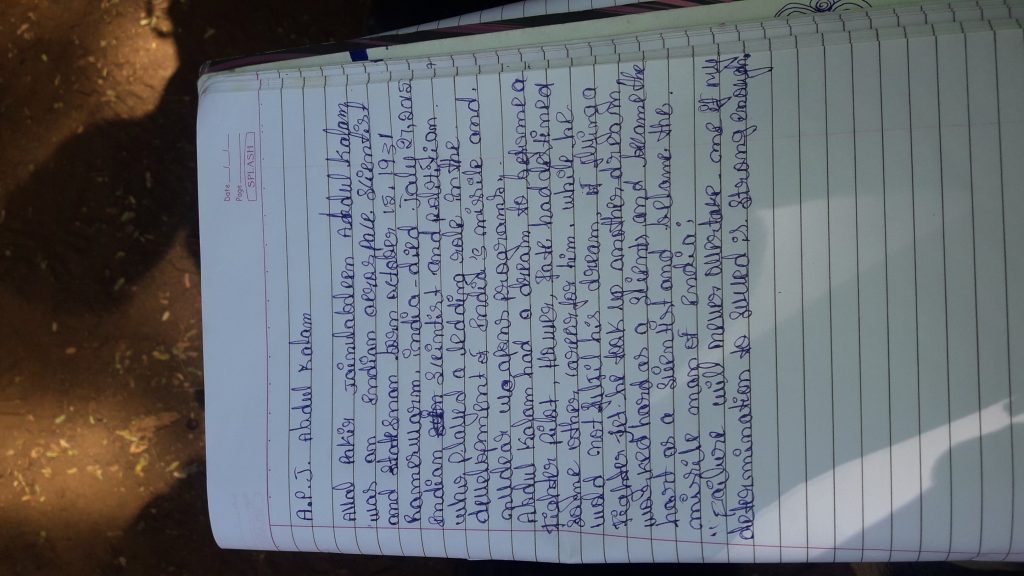 Date __/__/__
Page
SPLASH
A.P.J. Abdul Kalam
Avul Pakir Jainulabdeen Abdul Kalam
was an Indian aerospace scientist
and statesman born october 15, 1931
Rameswaram, india - died July 27, 2015
Indian scientist and politician
who played a ledding role in the
development of India's missile and
nuclear weapons programs,
Abdul Kalam had a dream to become a
Fighter pilot, However, fate had defined
some other career for him. while he
could not fulfil his dream, of flying a
Fighter Jet he tak up another dream
worked hard as a scients and became the
part as a scientist and the
missile man of India,
"Failure will never overtake me if my
determination to succed is strong enough.